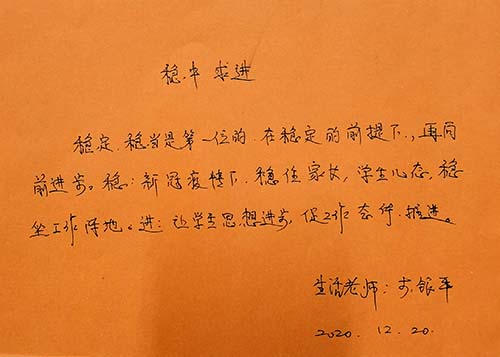 稳中求进
稳定、稳当是第一位的。在稳定的前提下,再向
前进步。稳:新冠疫情下,稳住家长,学生心态,稳
坐工作阵地。进:让学生思想进步,促工作 推进。
生活老师:李银平
2020.12.20.